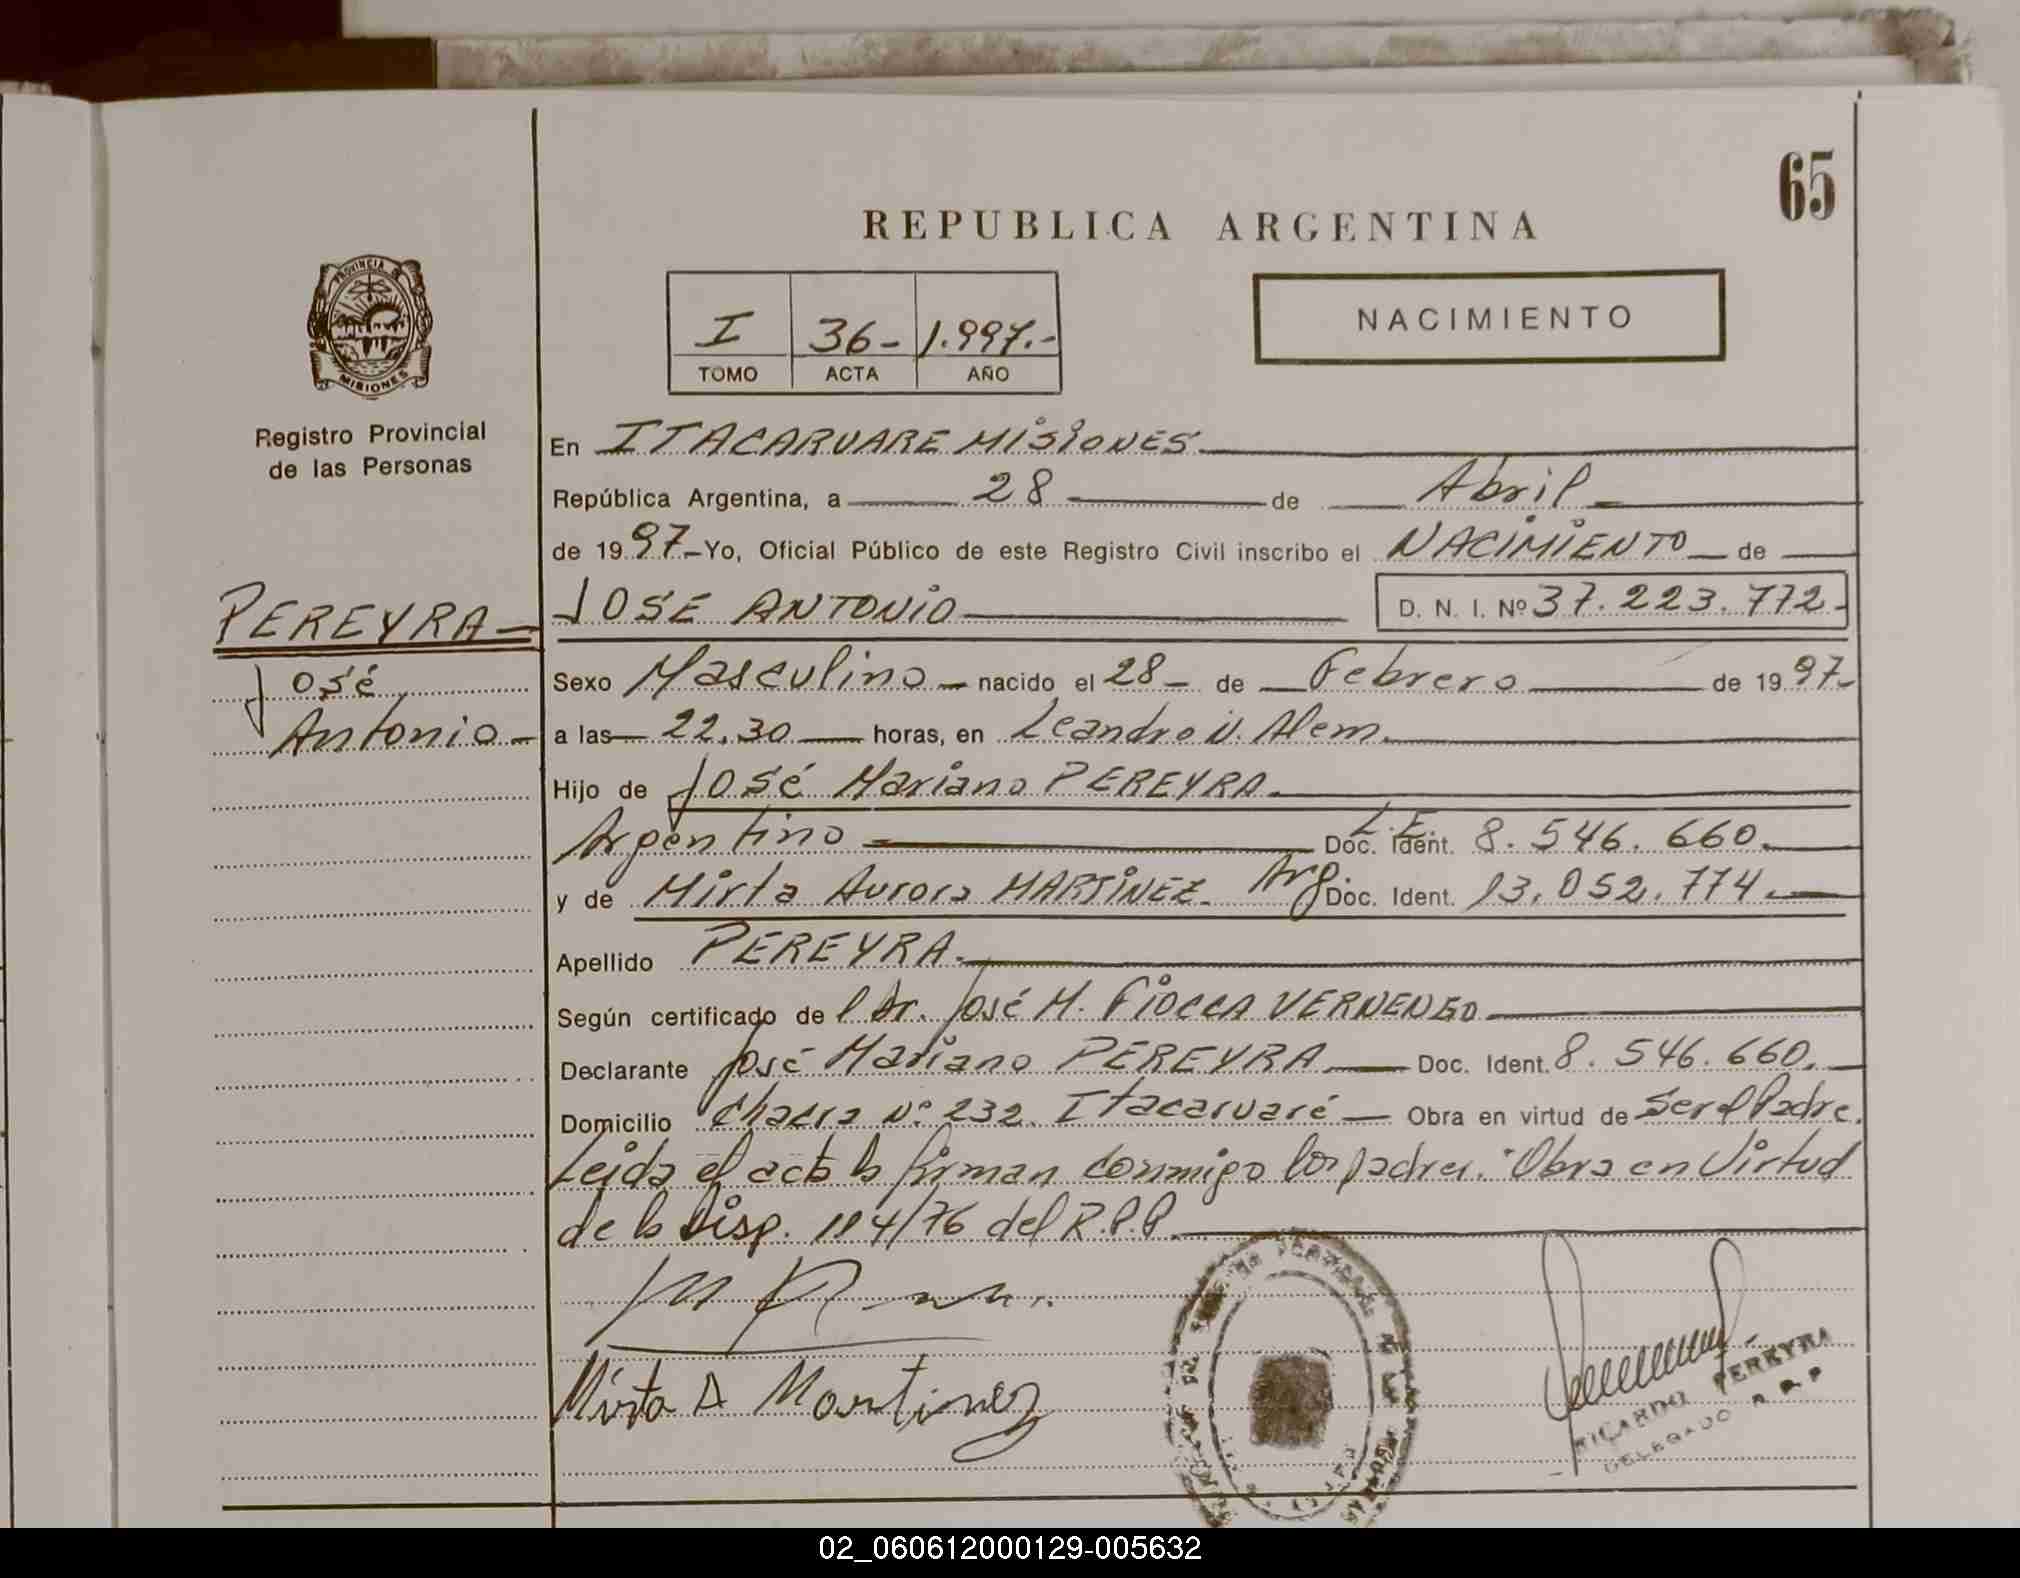 65
REPUBLICA ARGENTINA
PROVINCIA DE
MISIONES
Registro Provincial
de las Personas
I 36- 1.997.-
TOMO ACTA AÑO
NACIMIENTO
En ITACARUARE MISIONES
República Argentina, a 28 de Abril
de 1997 - Yo, Oficial Público de este Registro Civil inscribo el NACIMIENTO de
PEREYRA -
José
Antonio -
JOSE ANTONIO D. N. I. Nº 37.223.772-
Sexo Masculino - nacido el 28 - de Febrero de 1997-
a las 22.30 horas, en Leandro N. Alem.
Hijo de José Mariano PEREYRA.
Argentino L.E. Doc. Ident. 8.546.660.
y de Mirta Aurora MARTINEZ. Arg. Doc. Ident. 13.052.774.
Apellido PEREYRA.
Según certificado de l Dr. José M. FIOCCA VERNENGO
Declarante José Mariano PEREYRA Doc. Ident. 8.546.660.
Domicilio Chacra Nº 232. Itacaruaré - Obra en virtud de Ser el Padre.
Leida el acta la firman conmigo los padres. "Obra en Virtud
de la Disp. 114/76 del R.P.P.
Mirta A Martinez
RICARDO PEREYRA
DELEGADO R.P.P
02_060612000129-005632